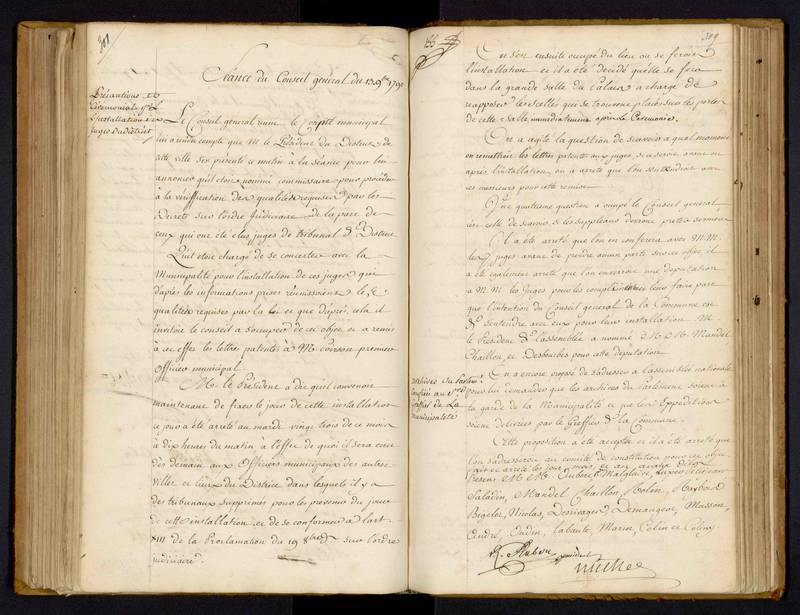 308
Séance du Conseil général du 13 9bre 1790
Précautions et
Cérémonial pr L
Installation des
Juges du District
Le Conseil général réuni, le Corps municipal
lui a rendu compte que M. le Président du District de
cette ville s'est présenté ce matin à la séance pour lui
annoncer qu'il étoit nommé commissaire pour procéder
à la vérification des qualités requises par les
Décrets sur l'ordre judiciaire de la part de
ceux qui ont été élus juges de tribunal de District
Qu'il étoit chargé de se concerter avec la
Municipalité pour l'installation de ces juges qui
d'après les informations prises réunissoient les
qualités requises par la loi et que d'après cela il
invitoit le conseil à s'occuper de cet objet et a remis
à cet effet les lettres patentes à M. Poirson premier
Officier municipal.
M. le Président a dit qu'il convenoit
maintenant de fixer le jour de cette installation
ce jour a été arrêté au mardi vingt trois de ce mois
à dix heures du matin à l'effet de quoi il sera écrit
dès demain aux Officiers municipaux des autres
villes et lieux du District dans lesquels il y a
des tribunaux supprimés pour les prévenir du jour
de cette installation et de se conformer à l'art.
XIII de la Proclamation du 19 8bre dr sur l'ordre
judiciaire.
155
309
On s'est ensuite occupé du lieu où se feroit
l'installation et il a été décidé qu'elle se fera
dans la grande salle du Palais à charge de
réapposer les scellés qui se trouvent placés sur les portes
de cette salle immédiatement après la Cérémonie.
On a agité la question de sçavoir à quel moment
on remettroit les lettres patentes aux juges, si ce seroit avant ou
après l'installation, on a arrêté que l'on s'entendroit avec
ces messieurs pour cette remise.
Une quatrième question a occupé le Conseil général
c'est celle de sçavoir, si les suppléans devront prêter serment
Il a été arrêté que l'on en conférera avec M.M.
les juges avant de prendre aucun parti sur cet objet, il
a été également arrêté que l'on enverroit une députation
à M.M. les Juges pour les complimenter et leur faire part
que l'intention du Conseil général de la Commune est
de s'entendre avec eux pour leur installation. M.
le Président de l'assemblée a nommé M.M. Mandel
Chaillon, et Desbourbes pour cette députation.
Archives du Parlemt
confiées au
Greffier de La
municipalité
On a encore proposé de s'adresser à l'assemblée nationale
pour lui demander que les archives du Parlement soient à
la garde de la Municipalité et que les Expéditions
soient délivrées par le Greffier de la Commune.
Cette proposition a été acceptée et il a été arrêté que
l'on s'adresseroit au comité de constitution pour cet objet
fait et arrêté les jour, mois et an avant dits
Présens M.M. Aubert, Malglaive,
Saladin, Mandel Chaillon, Holon,
Bigelot, Nicolas, Desrivages, Demangeot, Messon,
André, Oudin, Labaute, Marin, Colin et Coliny
président